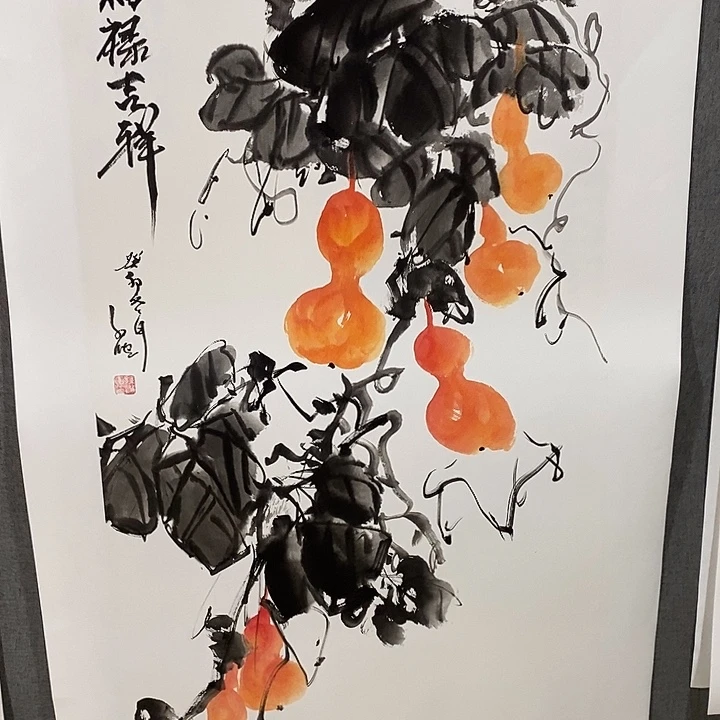 福禄吉祥
癸卯冬月